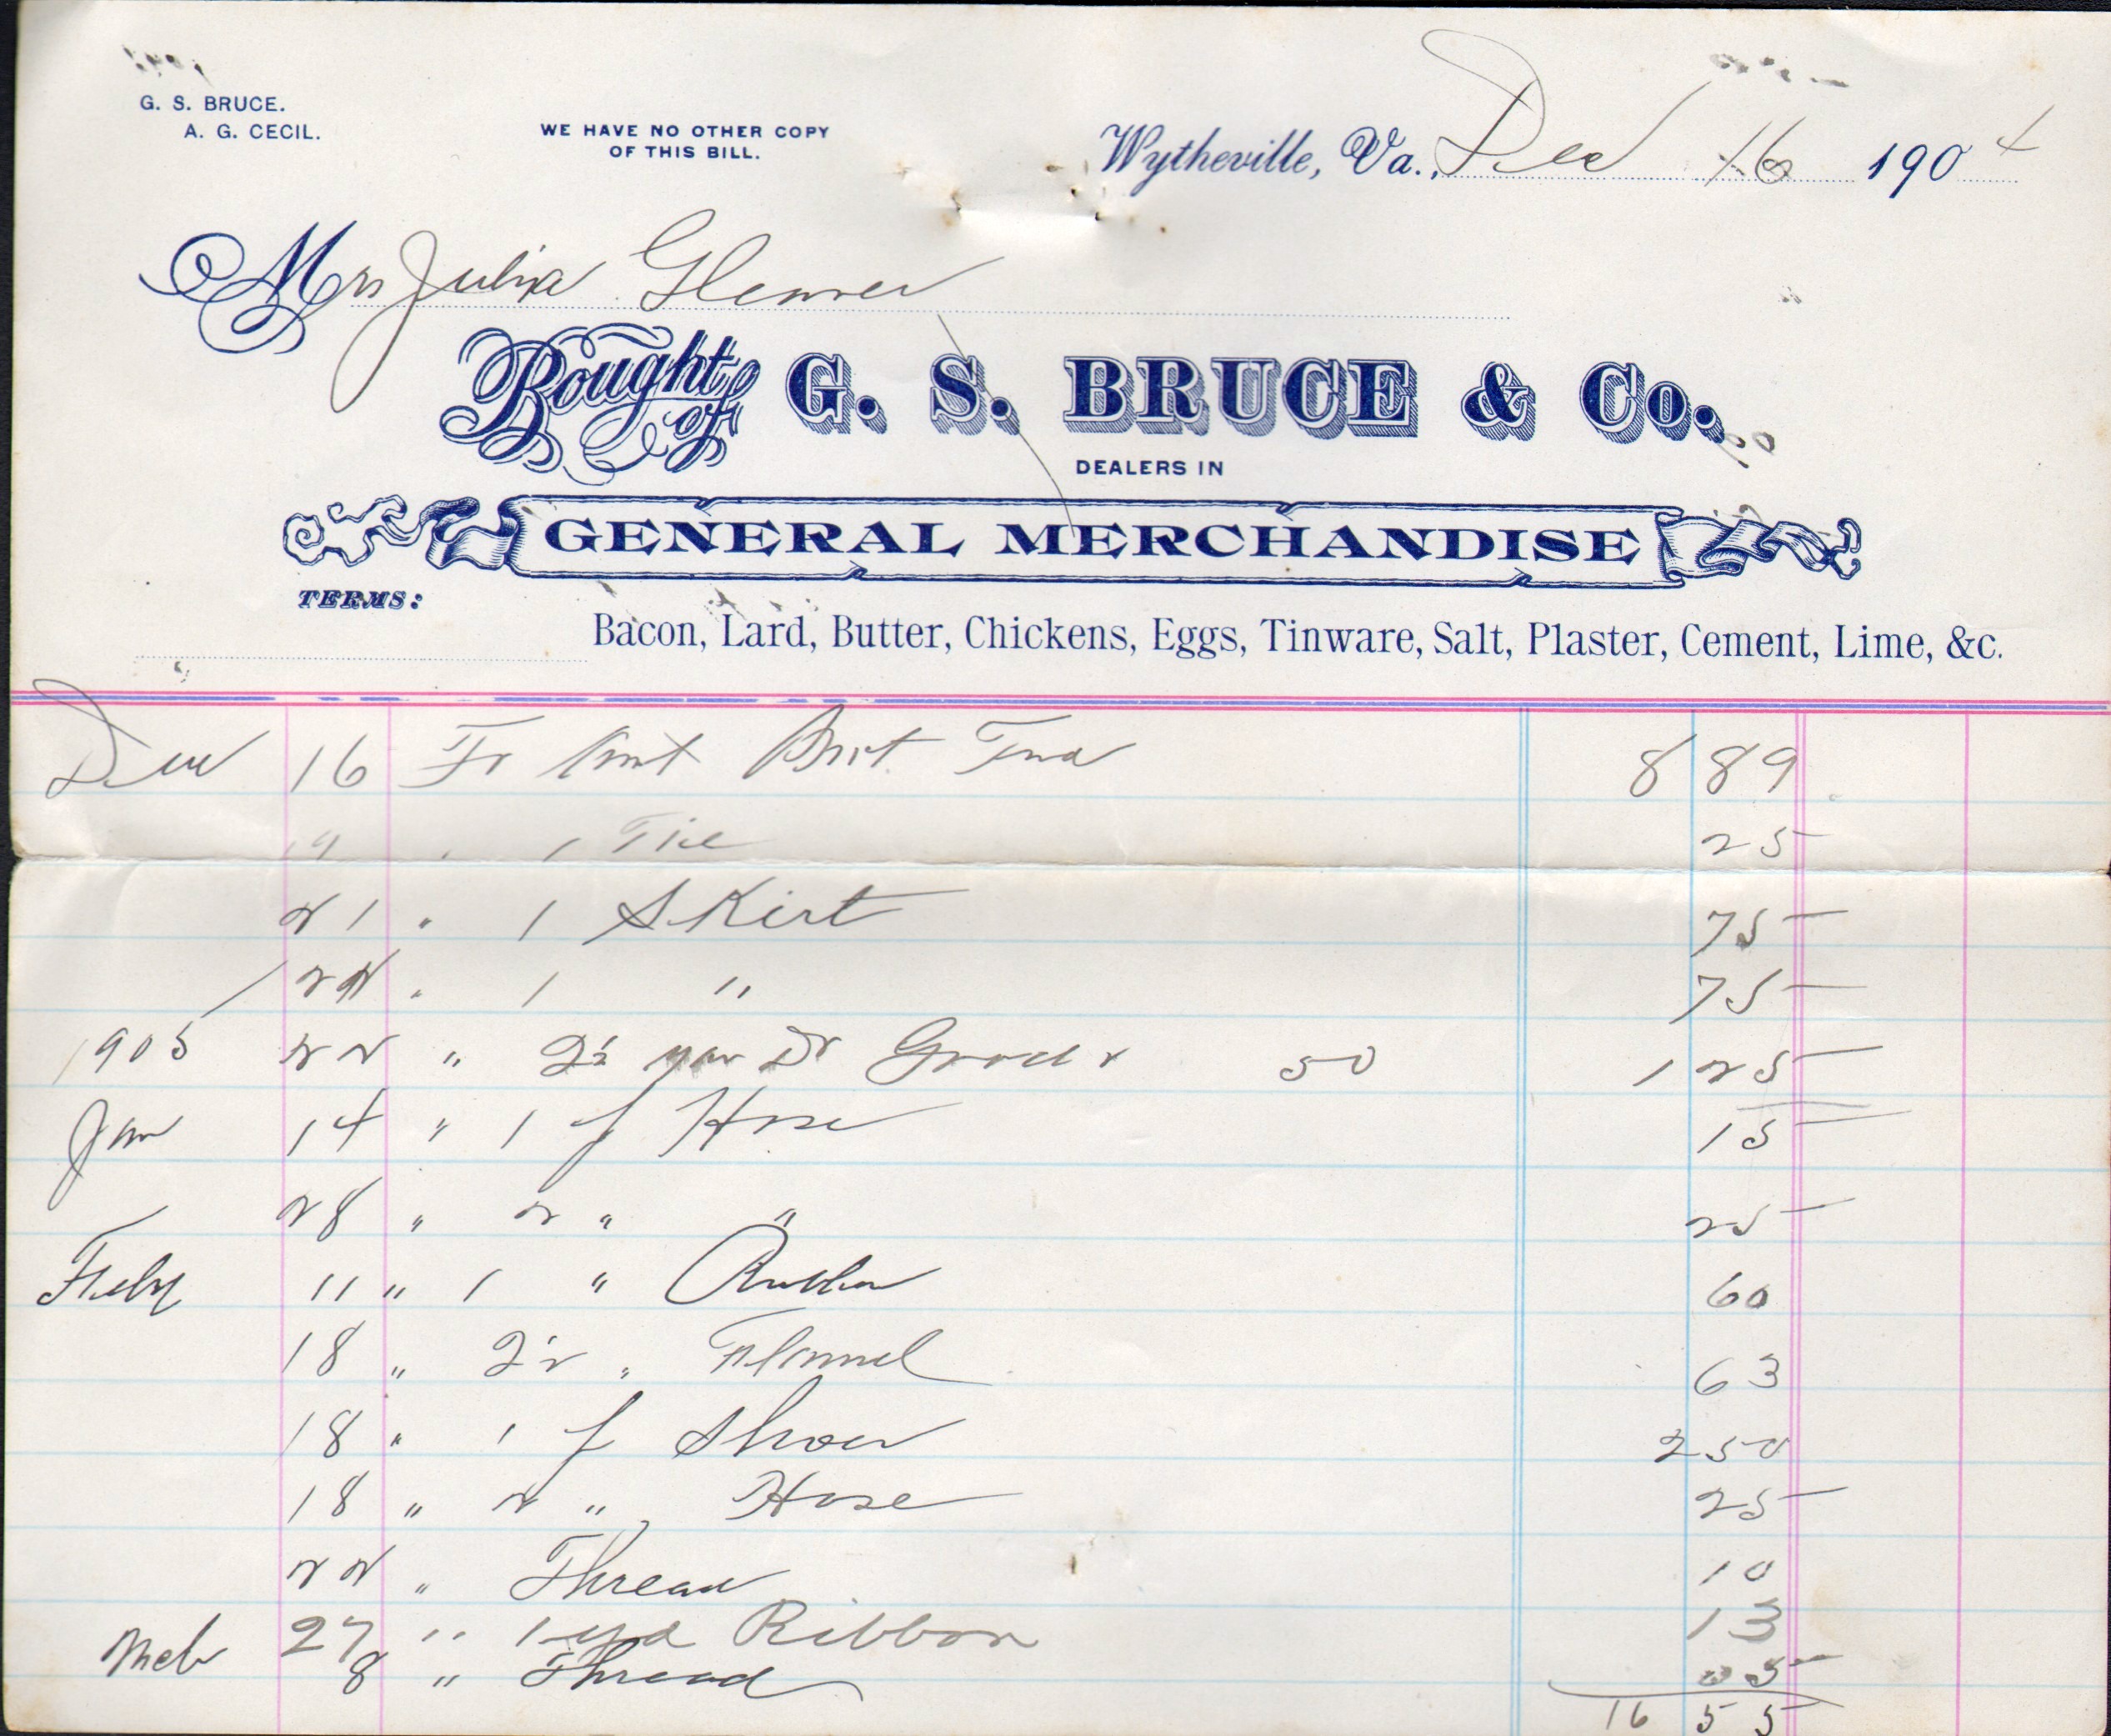 G. S. BRUCE.
A. G. CECIL.
WE HAVE NO OTHER COPY
OF THIS BILL.
Wytheville, Va., Dec 16 1904
Mrs Julia
Bought of G. S. BRUCE & Co.
DEALERS IN
GENERAL MERCHANDISE
TERMS:
Bacon, Lard, Butter, Chickens, Eggs, Tinware, Salt, Plaster, Cement, Lime, &c.
Dec 16 Amt 8 89
19 " 1 Tie 25
21 " 1 Skirt 75
" 1 " 75
1905 22 " 2½ Dr Goods 50 1 25
Jan 14 " 1 p Hose 15
28 " 2 " " 25
Feby 11 " 1 " 60
18 " 2½ " Flannel 63
18 " 1 p Shoes 2 50
18 " 2 " Hose 25
22 " Thread 10
27 " 1 yd Ribbon 13
Mch 8 " Thread 05
16 55